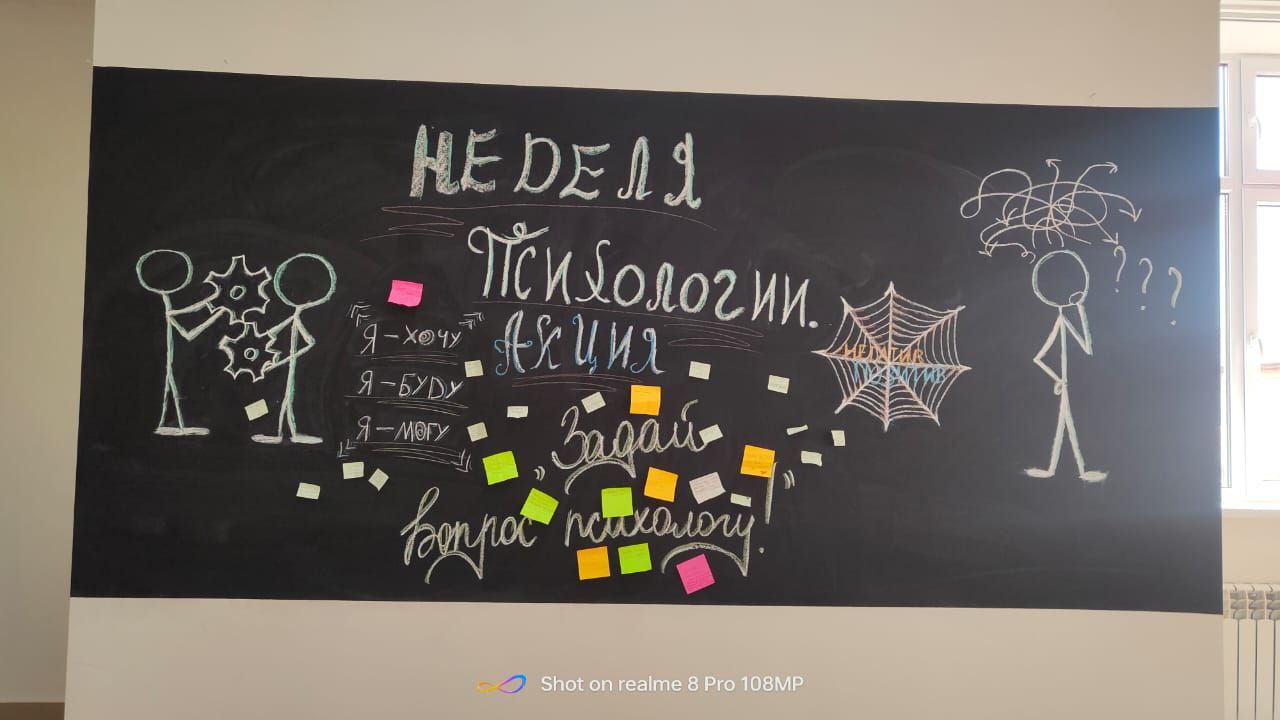 НЕДЕЛЯ
Психологии.
АКЦИЯ
Я - ХОЧУ
Я - БУДУ
Я - МОГУ
"Задай
вопрос психологу!"
НЕГАТИВ
ПОЗИТИВ
? ? ?
Shot on realme 8 Pro 108MP